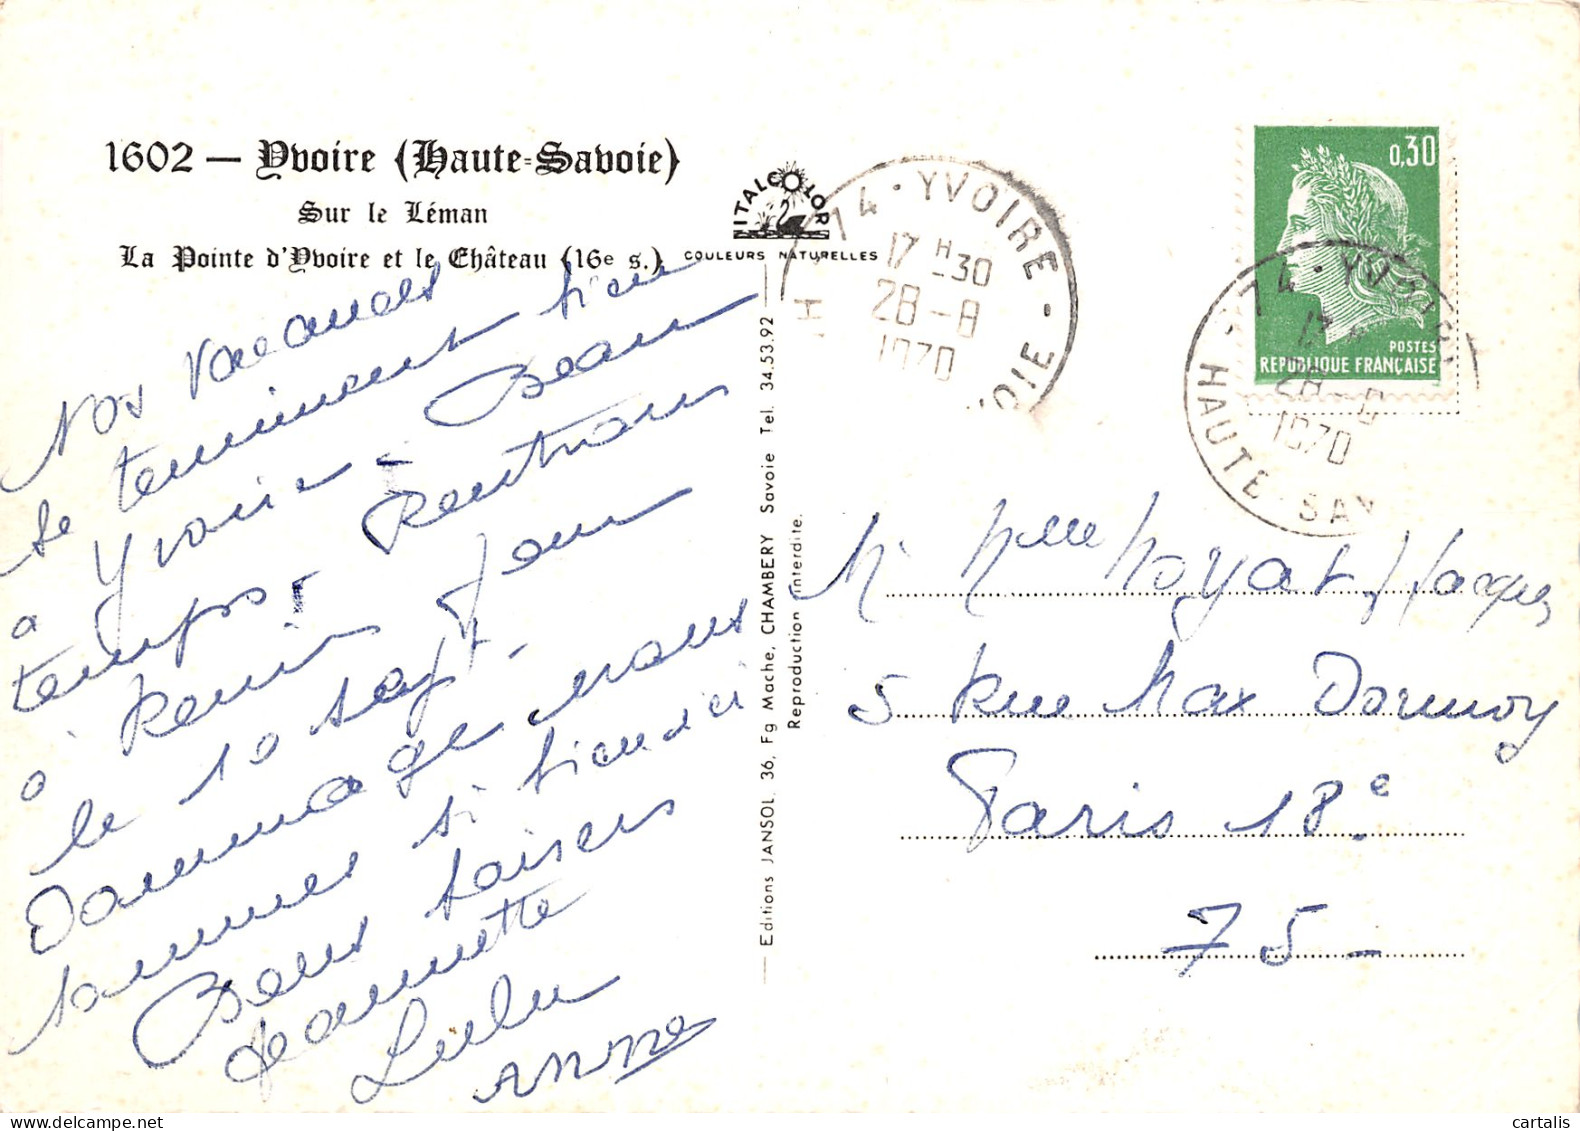 1602 — Yvoire (Haute-Savoie)
Sur le Léman
La Pointe d'Yvoire et le Château (16e s.)
ITALCOLOR
COULEURS NATURELLES
74 - YVOIRE - OIE H
17 H 30
28 - 8
1970
0,30
POSTES
REPUBLIQUE FRANÇAISE
74 - YVOIRE
HAUTE - SAV
17
28 - 8
1970
Nos vacances
se terminent bien
a Yvoire - Beau
temps - Rentrons
a Paris
le 10 sept -
Dommage nous
sommes si bien ici
Bons baisers
Jeannette
Lulu
Anne
Editions JANSOL, 36, Fg Mache, CHAMBERY Savoie Tel. 34.53.92
Reproduction interdite.
M. Mme Noyat Jacques
5 Rue Max Dormoy
Paris 18e
75 -
cartalis